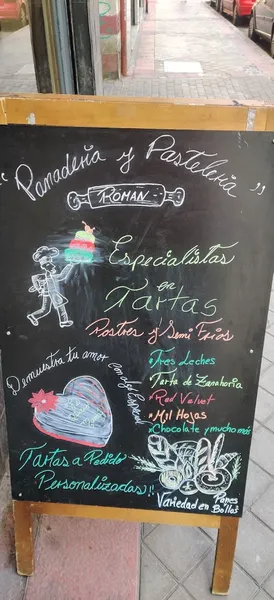 "Panadería y Pastelería"
ROMAN
Especialistas
en
Tartas
Postres y Semi Fríos
Demuestra tu amor
con algo Especial
Tres Leches
Tarta de Zanahoria
Red Velvet
Mil Hojas
Chocolate y mucho más
Tartas a Pedido
Personalizadas!!
Variedad en Panes
Bollos